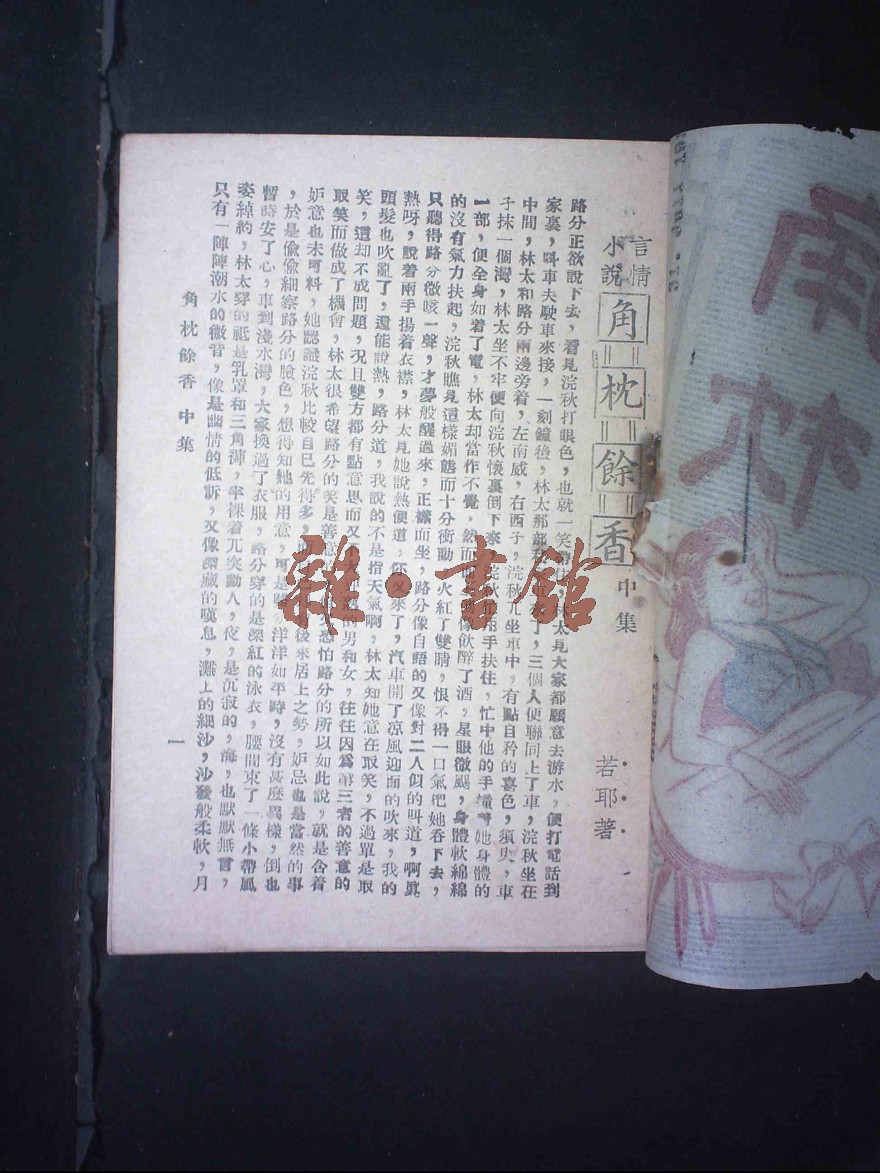 言情
小說
角枕餘香
中集
若耶著
路分正欲說下去，看見浣秋打眼色，也就一笑帶 林太見大家都願意去游水，便打電話到
家裏，叫車夫駛車來接，一刻鐘後，林太那部 了，三個人便聯同上了車，浣秋坐在
中間，林太和路分兩邊旁着，左南威，右西子，浣秋兀坐車中，有點自矜的喜色，須臾，車
子抹一個灣，林太坐不牢便向浣秋懷裏倒下來，浣秋用兩手扶住，忙中他的手 她身體的
一部，便全身如着了電，林太却當作不覺，然而 像飲醉了酒，星眼微 ，身體軟綿綿
的沒有氣力扶起，浣秋瞧見這樣媚態而十分衝動 火紅了雙睛，恨不得一口氣把她吞下去，
只聽得路分微咳一聲，才夢般醒過來，正襟而坐，路分像自語的又像對二人似的叫道，啊異
熱呀，說着兩手揚着衣襟，林太見她說熱便道，你又來了，汽車開了凉風迎面的吹來，我的
頭髮也吹亂了，還能說熱，路分道，我說的不是指天氣啊，林太知她意在取笑，不過單是取
笑，這却不成問題，况且雙方都有點意思而又 男和女，往往因爲第三者的善意的
取笑而做成了機會，林太很希望路分的笑是善意 恐怕路分的所以如此說，就是含着
妒意也未可料，她認識浣秋比較自己先得多， 後來居上之勢，妒忌也是當然的事
，於是偷偷細察路分的臉色，想得知她的用意，可是 洋洋如平時，沒有甚麽異樣，倒也
暫時安了心，車到淺水灣，大家換過了衣服，路分穿的是深紅的泳衣，腰間束了一條小帶風
姿綽約，林太穿的祇是乳罩和三角褲，半裸着兀突動人，夜，是沉寂的，海，也默默無言，
只有一陣陣潮水的微音，像是幽情的低訴，又像深藏的嘆息，灘上的細沙，沙發般柔軟，月
角枕餘香中集
一
雜·書館